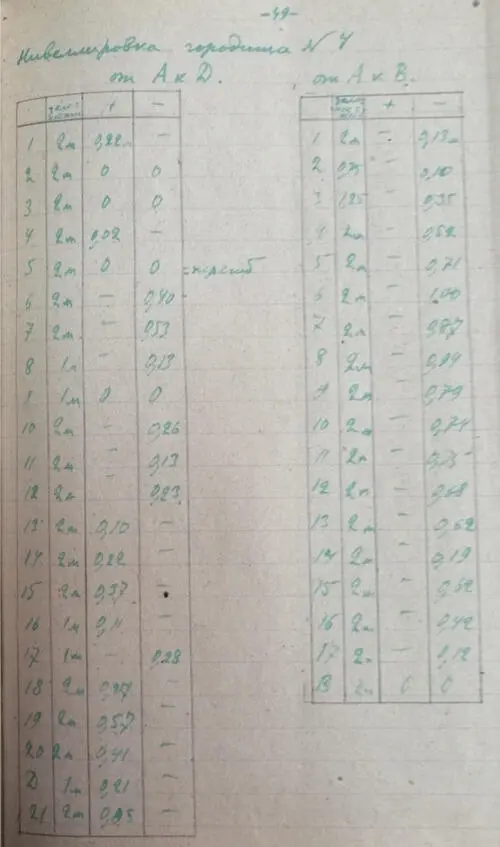 -49-
Нивеллировка городища N 7
от А к D.
+ -
1 2м 0,22м -
2 2м 0 0
3 2м 0 0
4 2м 0,02 -
5 2м 0 0 - перегиб
6 2м - 0,40
7 2м - 0,53
8 1м - 0,13
9 1м 0 0
10 2м - 0,26
11 2м - 0,13
12 2м 0,23
13 2м 0,10 -
14 2м 0,22 -
15 2м 0,37 -
16 1м 0,11 -
17 1м - 0,28
18 2м -
19 2м 0,57 -
20 2м 0,41 -
D 1м 0,21 -
21 2м -
от А к В.
+ -
1 2м - 0,13м
2 0,75 - 0,10
3 1,25 - 0,35
4 2м - 0,52
5 2м - 0,71
6 2м - 1,00
7 2м - 0,87
8 2м -
9 2м - 0,79
10 2м - 0,74
11 2м - 0,75
12 2м - 0,68
13 2м - 0,62
14 2м - 0,19
15 2м - 0,62
16 2м - 0,42
17 2м - 0,12
В 2м 0 0